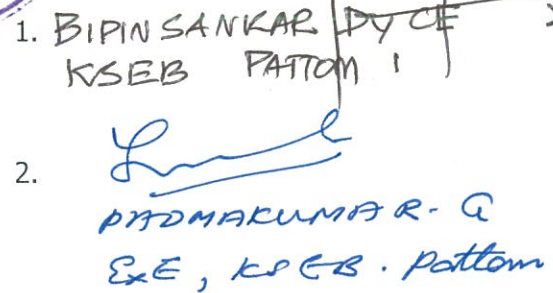 1. BIPIN SANKAR DY CE
KSEB PATTOM
2.
PADMAKUMAR. G
ExE, KSEB. Pattom